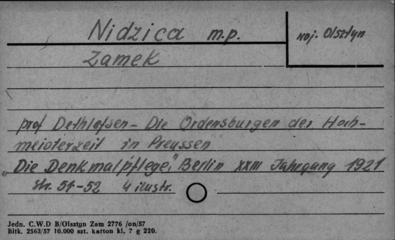 Nidzica m.p.
woj. Olsztyn
Zamek
prof Dethlefsen - Die Ordensburgen der Hoch-
meisterzeit in Preussen
„Die Denkmalpflege" Berlin XXIII Jahrgang 1921
str. 51-52 4 ilustr.
Jedn. C.W.D B/Olsztyn Zam 2776 /on/57
Bitk. 2562/57 10.000 szt. karton kl. 7 g 220.